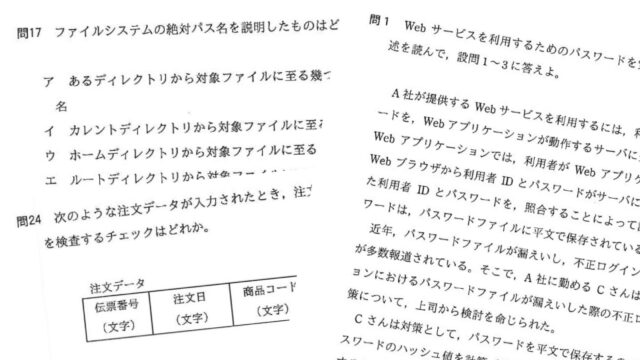 問17 ファイルシステムの絶対パス名を説明したものはど
ア あるディレクトリから対象ファイルに至る幾つ
名
イ カレントディレクトリから対象ファイルに至
ウ ホームディレクトリから対象ファイルに至る
エ ルートディレクトリから対象ファイルに至る
問24 次のような注文データが入力されたとき，注
を検査するチェックはどれか。
注文データ
伝票番号 注文日 商品コード
（文字） （文字） （文字）
問1 Web サービスを利用するためのパスワードを
述を読んで，設問1～3に答えよ。
A社が提供する Web サービスを利用するには，利
ードを，Web アプリケーションが動作するサーバに
Web アプリケーションでは，利用者が Web アプリケ
Web ブラウザから利用者 ID とパスワードがサーバに
た利用者 ID とパスワードを，照合することによって
ワードは，パスワードファイルに平文で保存されている
近年，パスワードファイルが漏えいし，不正ログイン
が多数報道されている。そこで，A社に勤めるCさんは
ョンにおけるパスワードファイルが漏えいした際の不正ロ
策について，上司から検討を命じられた。
Cさんは対策として，パスワードを平文で保存する
スワードのハッシュ値を計算